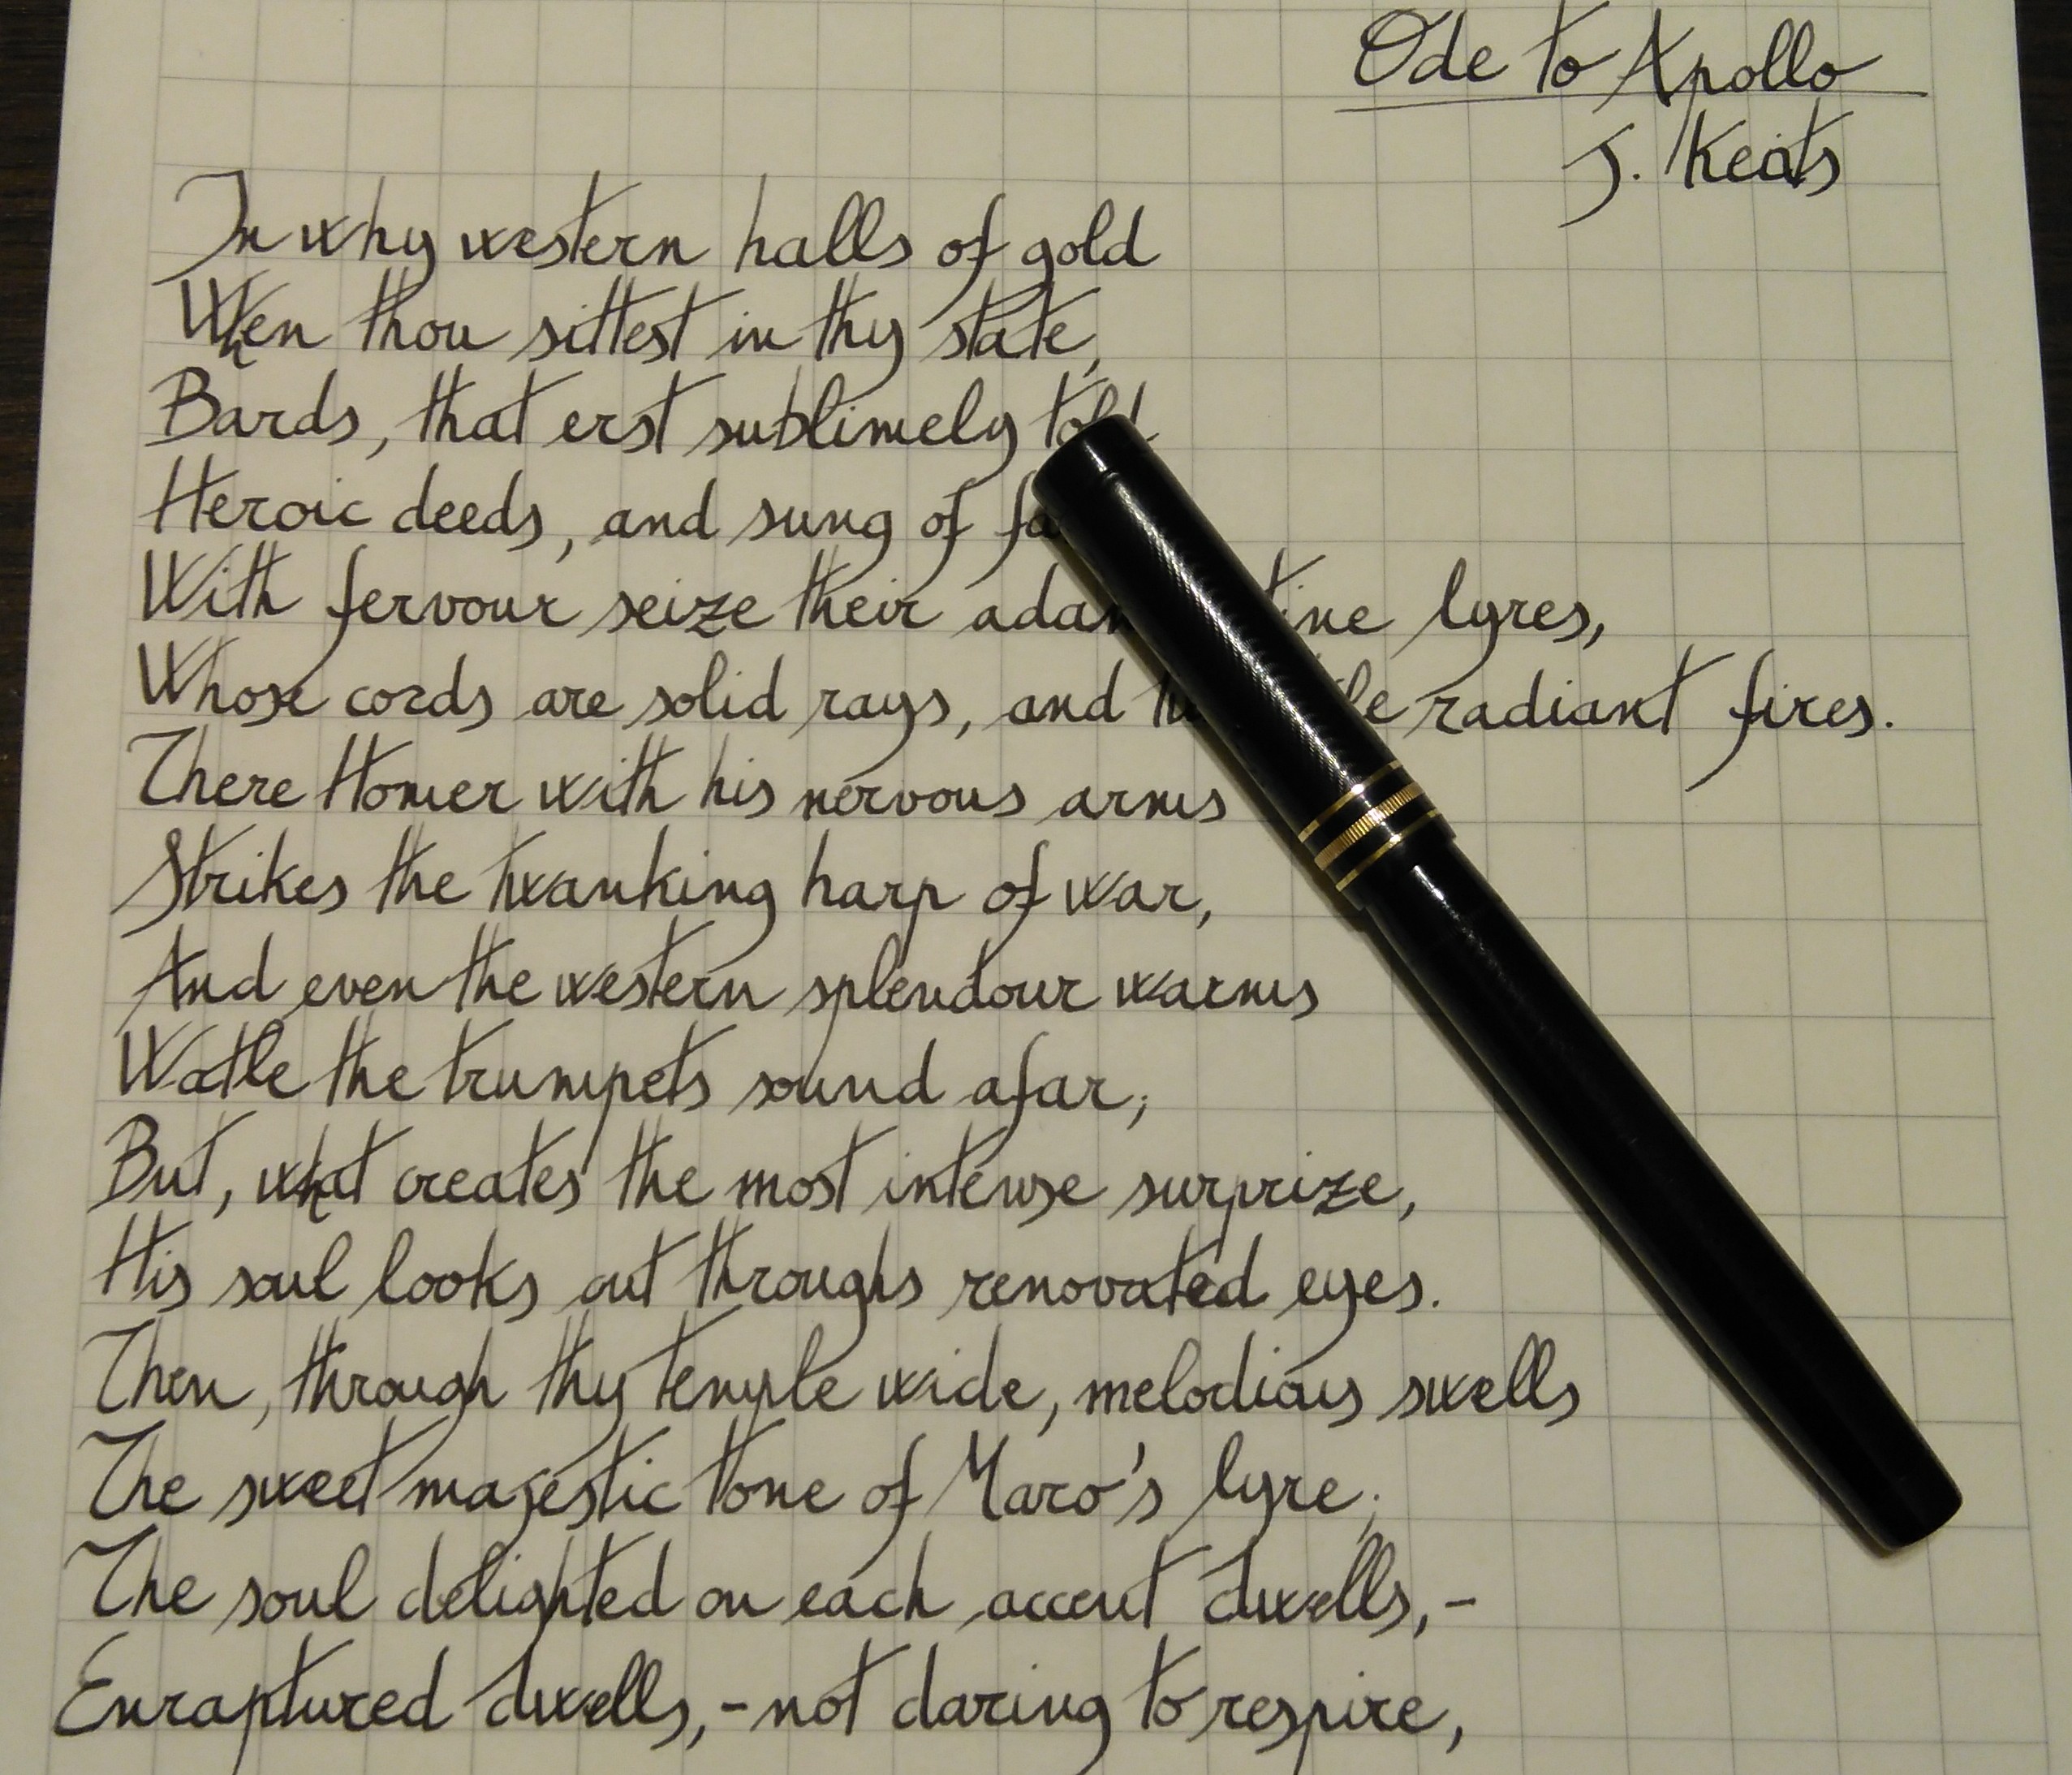 Ode to Apollo
J. Keats
In why western halls of gold
When thou sittest in thy state,
Bards, that erst sublimely told
Heroic deeds, and sung of fa
With fervour seize their adam tine lyres,
Whose cords are solid rays, and tw le radiant fires.
There Homer with his nervous arms
Strikes the twanking harp of war,
And even the western splendour warms
Watle the trumpets sound afar;
But, what creates the most intense surprize,
His soul looks out throughs renovated eyes.
Then, through thy temple wide, melodious swells
The sweet majestic tone of Maro's lyre;
The soul delighted on each accent dwells,-
Enraptured dwells,-not daring to respire,